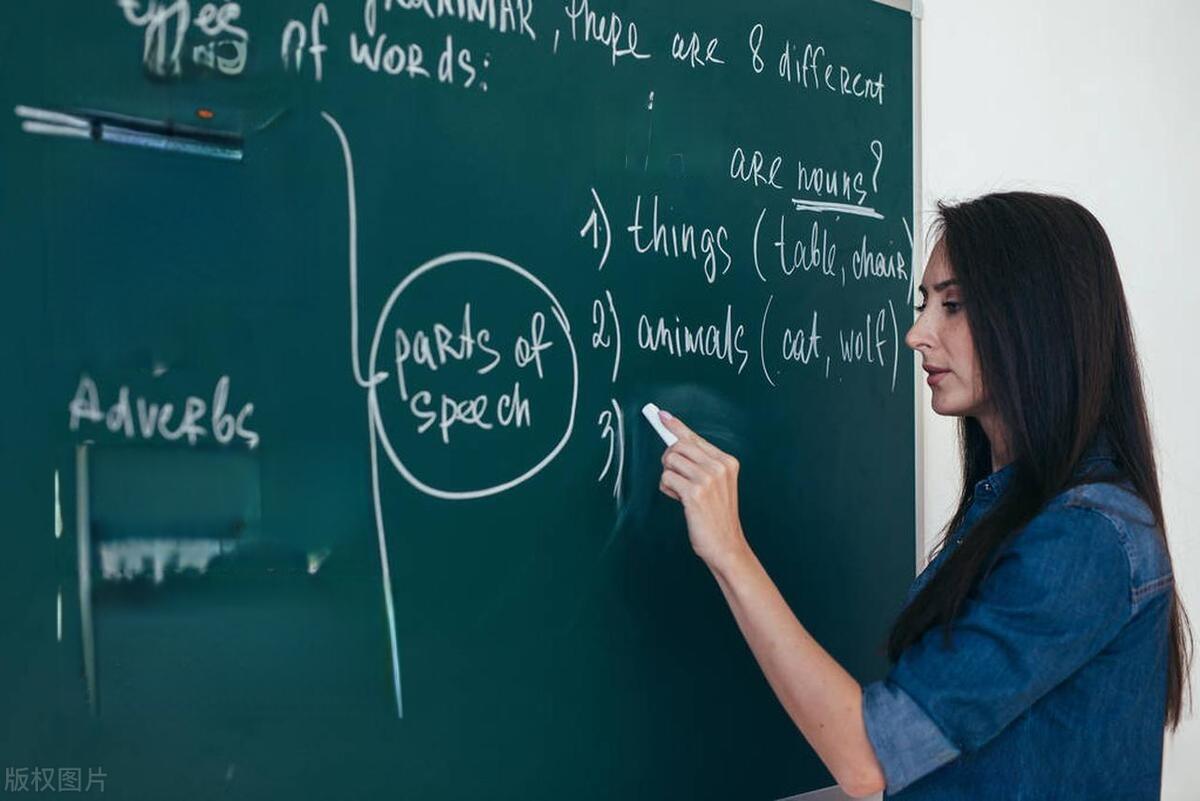 types of GRAMMAR, there are 8 different
of words:
are nouns?
1) things (table, chair)
2) animals (cat, wolf)
3)
parts of
speech
Adverbs
版权图片